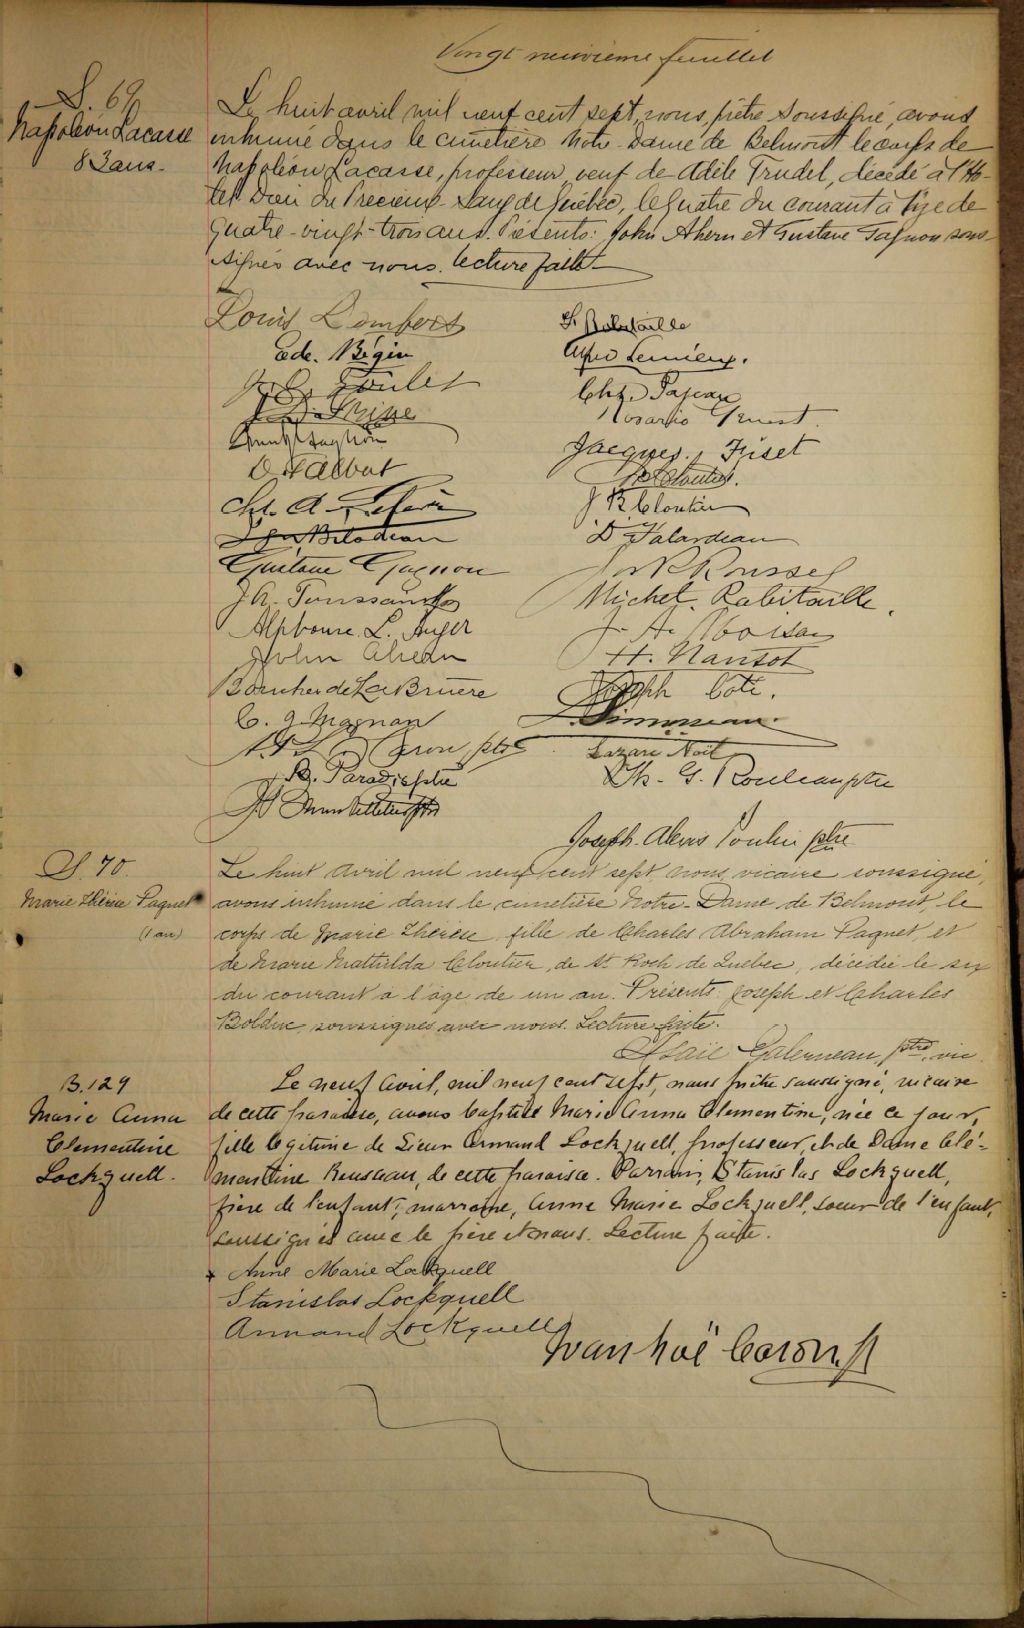 Vingt neuvième feuillet
S. 69
Napoléon Lacasse
83 ans.
Le huit avril mil neuf cent sept, nous, prêtre soussigné, avons
inhumé dans le cimetière Notre-Dame de Belmont le corps de
Napoléon Lacasse, professeur, veuf de Adèle Trudel, décédé à l'Hô-
tel Dieu du Précieux-Sang de Québec, le quatre du courant à l'âge de
quatre-vingt-trois ans. Présents: John Ahern et Gustave Gagnon sous-
signés avec nous. Lecture faite
Louis Lambert
Robitaille
Ede. Bégin
Alfred Lemieux.
Goulet
Chs. Papeau
Rosario Genest.
Jacques Fiset
D. Talbot
Cloutier.
Chs. A. Lefèvre
J B Cloutier
Bilodeau
D. Falardeau
Gustave Gagnon
Roussel
Toussaint
Michel Robitaille.
Alphonse L. Auger
J. A.
John Ahern
H. Nansot
Boucher de LaBruère
Joseph Coté.
C. J. Magnan
Simoneau.
Caron, ptre
Lazare Noël
Paradis ptre
Th. G. Rouleau ptre
Joseph-Alexis Poulin ptre
S. 70.
Marie Thérèse Paquet
(1 an)
Le huit avril mil neuf cent sept, nous, vicaire soussigné,
avons inhumé dans le cimetière Notre-Dame de Belmont, le
corps de Marie Thérèse, fille de Charles Abraham Paquet, et
de Marie Mathilda Cloutier, de St Roch de Québec, décédée le six
du courant à l'âge de un an. Présents: Joseph et Charles
Bolduc, soussignés avec nous. Lecture faite.
Isaïe Galerneau, ptre, vic
B. 129
Marie Anna
Clementine
Lockquell.
Le neuf avril, mil neuf cent sept, nous prêtre soussigné, vicaire
de cette paroisse, avons baptisé Marie Anna Clementine, née ce jour,
fille légitime de Sieur Armand Lockquell, professeur, et de Dame Clé-
mentine Rousseau, de cette paroisse. Parrain, Stanislas Lockquell,
frère de l'enfant; marraine, Anne Marie Lockquell, soeur de l'enfant,
soussignés avec le père et nous. Lecture faite.
+ Anne Marie Lockquell
Stanislas Lockquell
Armand Lockquell
Ivanhoë Caron, ptr